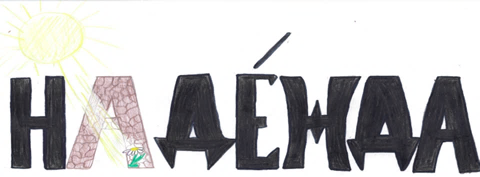 НАДЕ́ЖДА